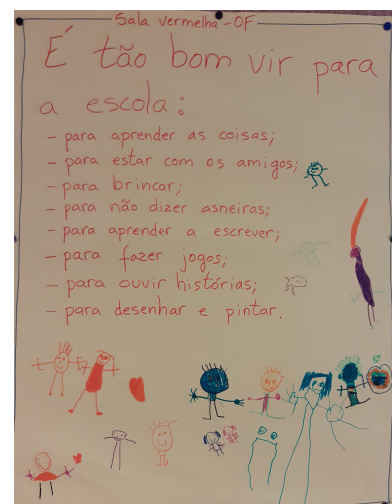 Sala vermelha - OF
É tão bom vir para
a escola:
- para aprender as coisas;
- para estar com os amigos;
- para brincar;
- para não dizer asneiras;
- para aprender a escrever;
- para fazer jogos;
- para ouvir histórias;
- para desenhar e pintar.